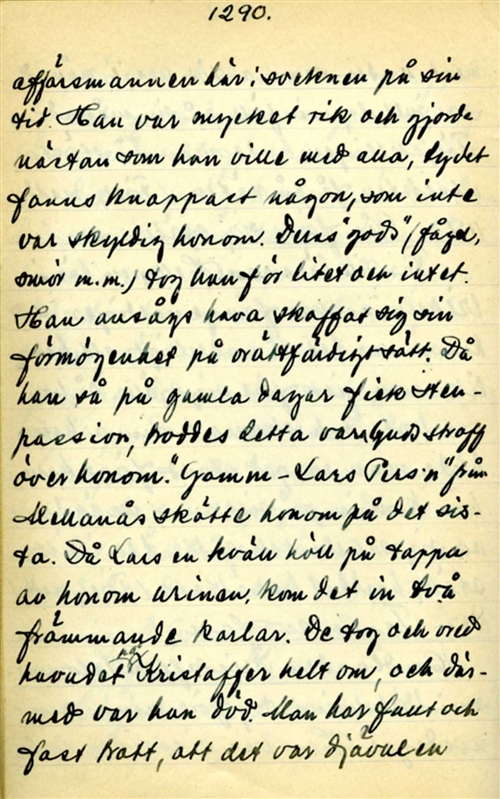 1290.
affärsmannen här i socknen på sin
tid. Han var mycket rik och gjorde
nästan som han ville med alla, ty det
fanns knappast någon, som inte
var skyldig honom. Deras "gods" (fågel,
smör m.m.) tog han för litet och intet.
Han ansågs hava skaffat sig sin
förmögenhet på orättfärdigt sätt. Då
han så på gamla dagar fick sten-
passion, troddes detta vara Guds straff
över honom. "Gamm-Lars Pers'n" från
Mellanås skötte honom på det sis-
ta. Då Lars en kväll höll på tappa
av honom urinen, kom det in två
främmande karlar. De tog och vred
huvudet på Kristaffer helt om, och där-
med var han död. Man har fullt och
fast trott, att det var djävulen